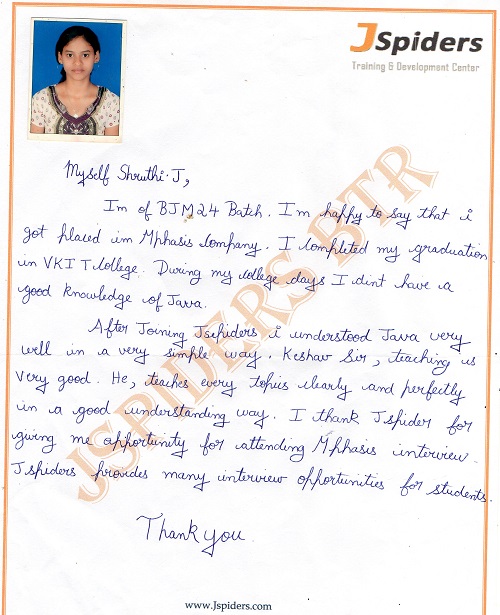 JSpiders
Training & Development Center
Myself Shruthi.J,
Im of BJM24 Batch. I'm happy to say that i
got placed in Mphasis company. I completed my graduation
in VKIT College. During my college days I dint have a
good knowledge of Java.
After Joining Jspiders i understood Java very
well in a very simple way. Keshav Sir, teaching is
very good. He, teaches every topics clearly and perfectly
in a good understanding way. I thank Jspider for
giving me opportunity for attending Mphasis interview.
Jspiders provides many interview opportunities for students.
Thank you.
JSPIDERS BTR
www.Jspiders.com